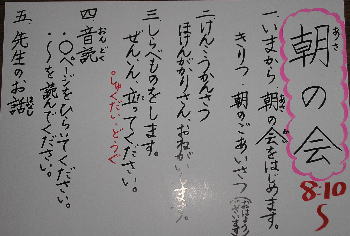 朝の会
あさ
8:10〜
一、いまから 朝の会をはじめます。
あさ
かい
きりつ 朝のごあいさつ(おはようございます)
あさ
二、けんこうかんさつ
ほけんがかりさん、おねがいします。
三、しらべものをします。
ぜんいん、立ってください。
しゅくだい・どうぐ
四、音読
おんどく
・〇ページをひらいてください。
・〜を読んでください。
五、先生のお話
はなし